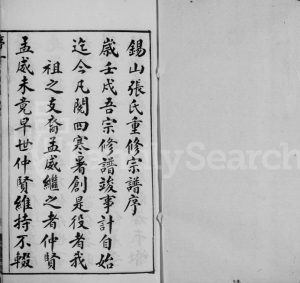 錫山張氏重修宗譜序
歲壬戌吾宗修譜竣事計自始
迄今凡閱四寒暑創是役者我
祖之支裔孟威繼之者仲賢
孟威未竟早世仲賢維持不輟